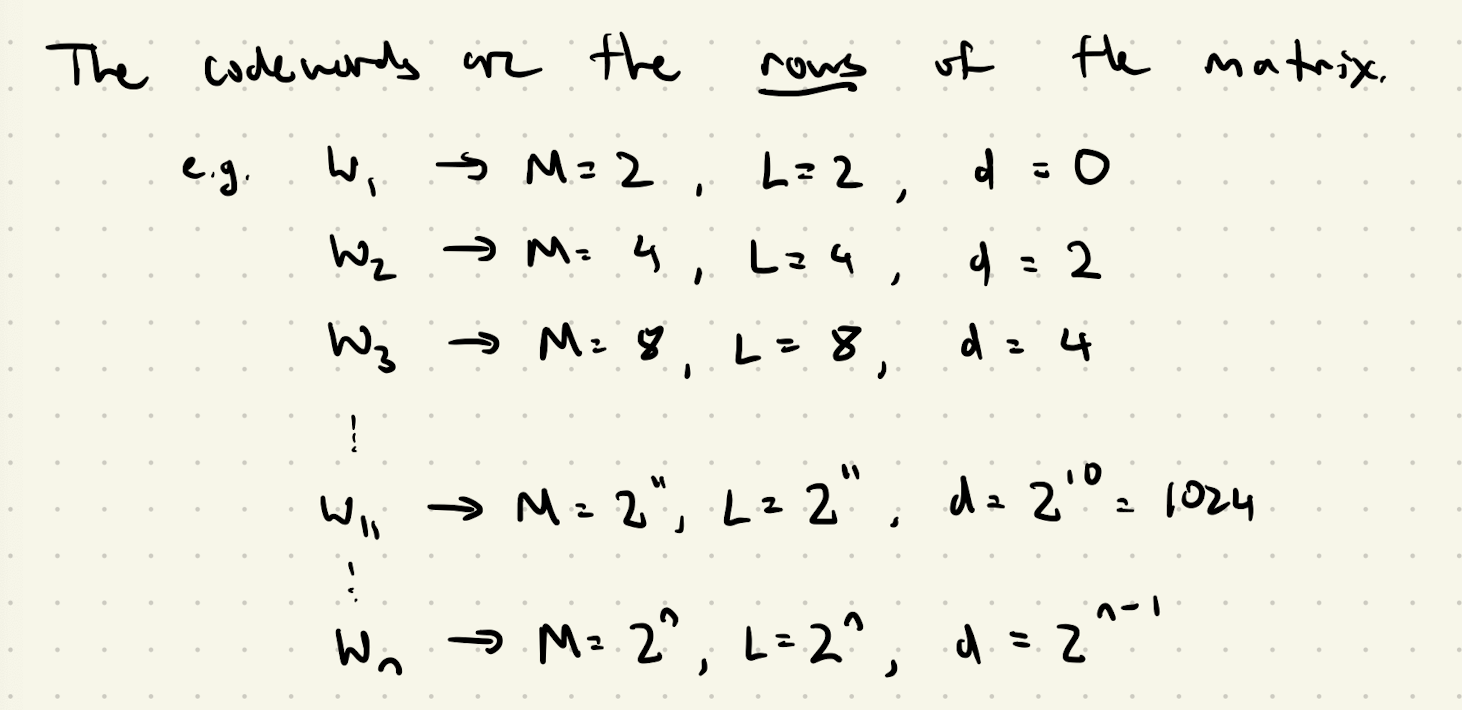 The codewords are the rows of the matrix.
e.g. W₁ → M = 2 , L = 2 , d = 0
W₂ → M = 4 , L = 4 , d = 2
W₃ → M = 8 , L = 8 , d = 4
⋮
W₁₁ → M = 2¹¹, L = 2¹¹, d = 2¹⁰ = 1024
⋮
Wₙ → M = 2ⁿ, L = 2ⁿ, d = 2ⁿ⁻¹